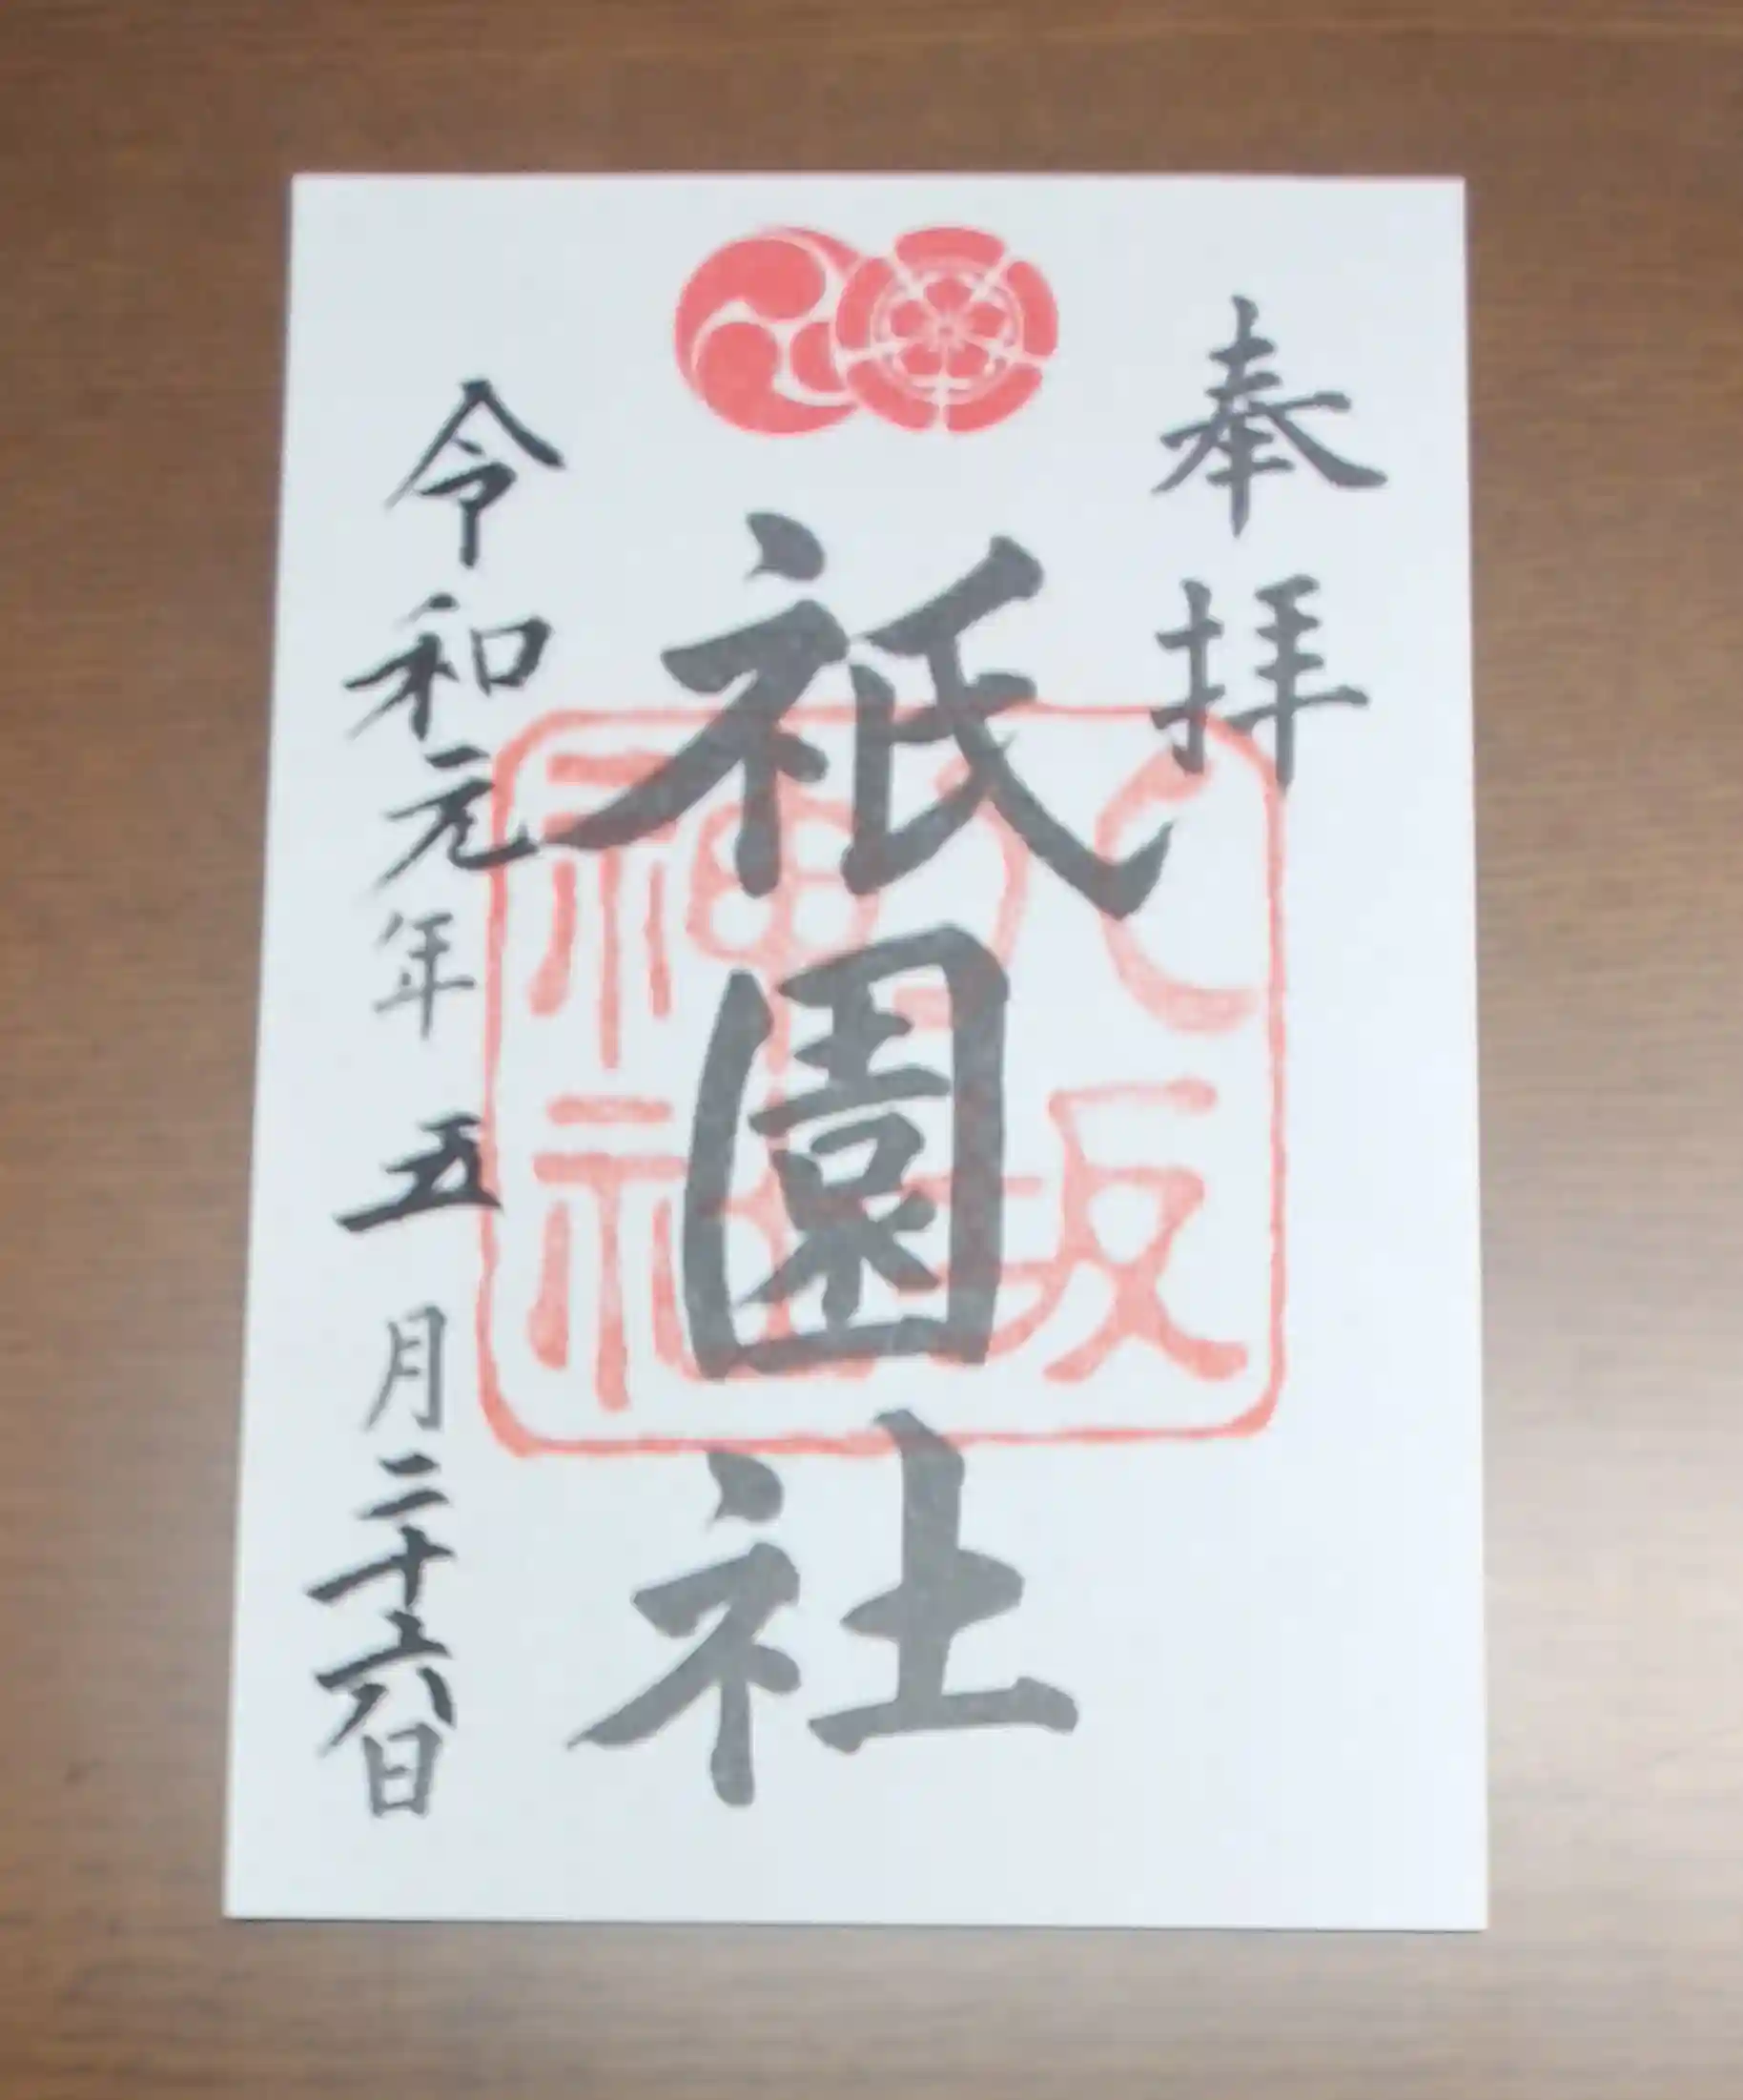 奉拝
祇園社
八坂
神社
令和元年 五月二十六日